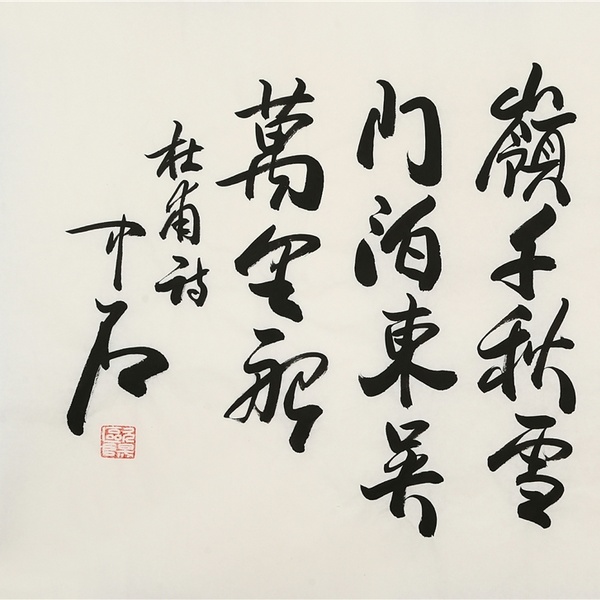 嶺千秋雪
門泊東吳
萬里船
杜甫诗
中石